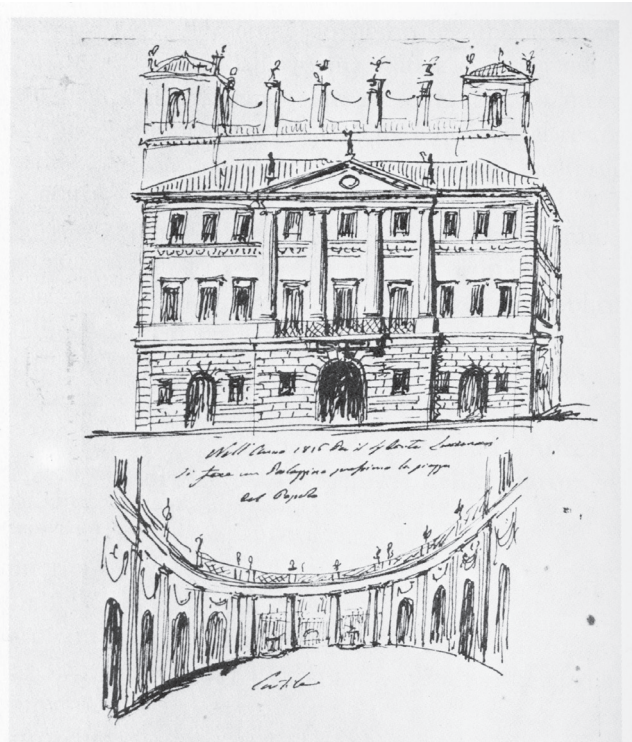 Nell'Anno 1816 Per il Sig Conte
di fare un Palazzino prossimo la piazza
del Popolo
Cortile